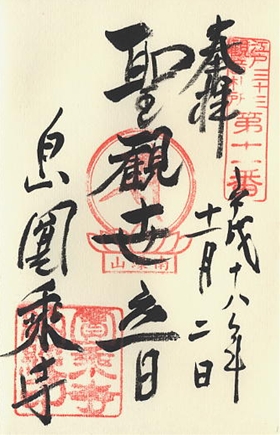 江戸三十三
観音札所
第十一番
奉拝
平成十八年
十一月二日
聖觀世音
白山圓乘寺